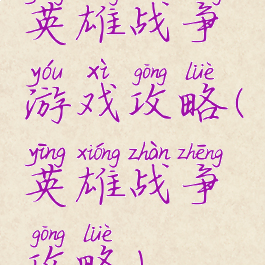 英雄战争
yóu xì gōng lüè
游戏攻略(
yīng xióng zhàn zhēng
英雄战争
gōng lüè
攻略)